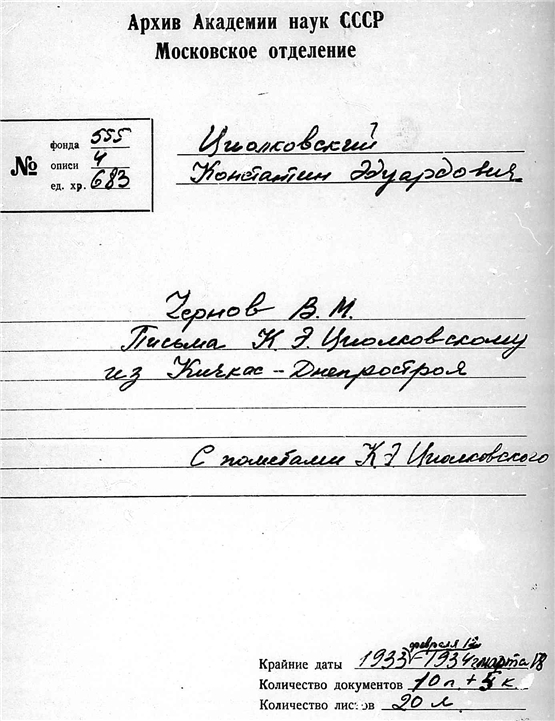 Архив Академии наук СССР
Московское отделение
№
фонда 555
описи 4
ед. хр. 683
Циолковский
Константин Эдуардович
Чернов В. М.
Письма К. Э. Циолковскому
из Кичкас - Днепростроя
С пометами К. Э. Циолковского
февраля 12
Крайние даты 1933 - 1934 г. марта 18
Количество документов 10 п. + 5 к.
Количество листов 20 л.